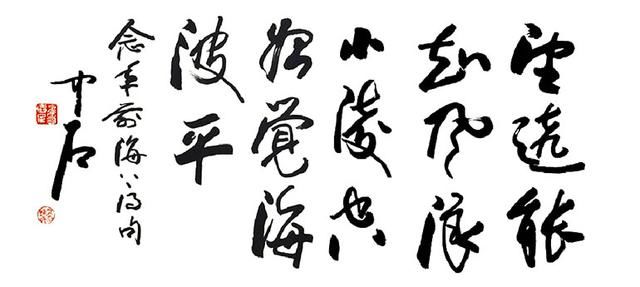 望远能
知风浪
小凌空
始觉海
波平
念年前海上得句
中石